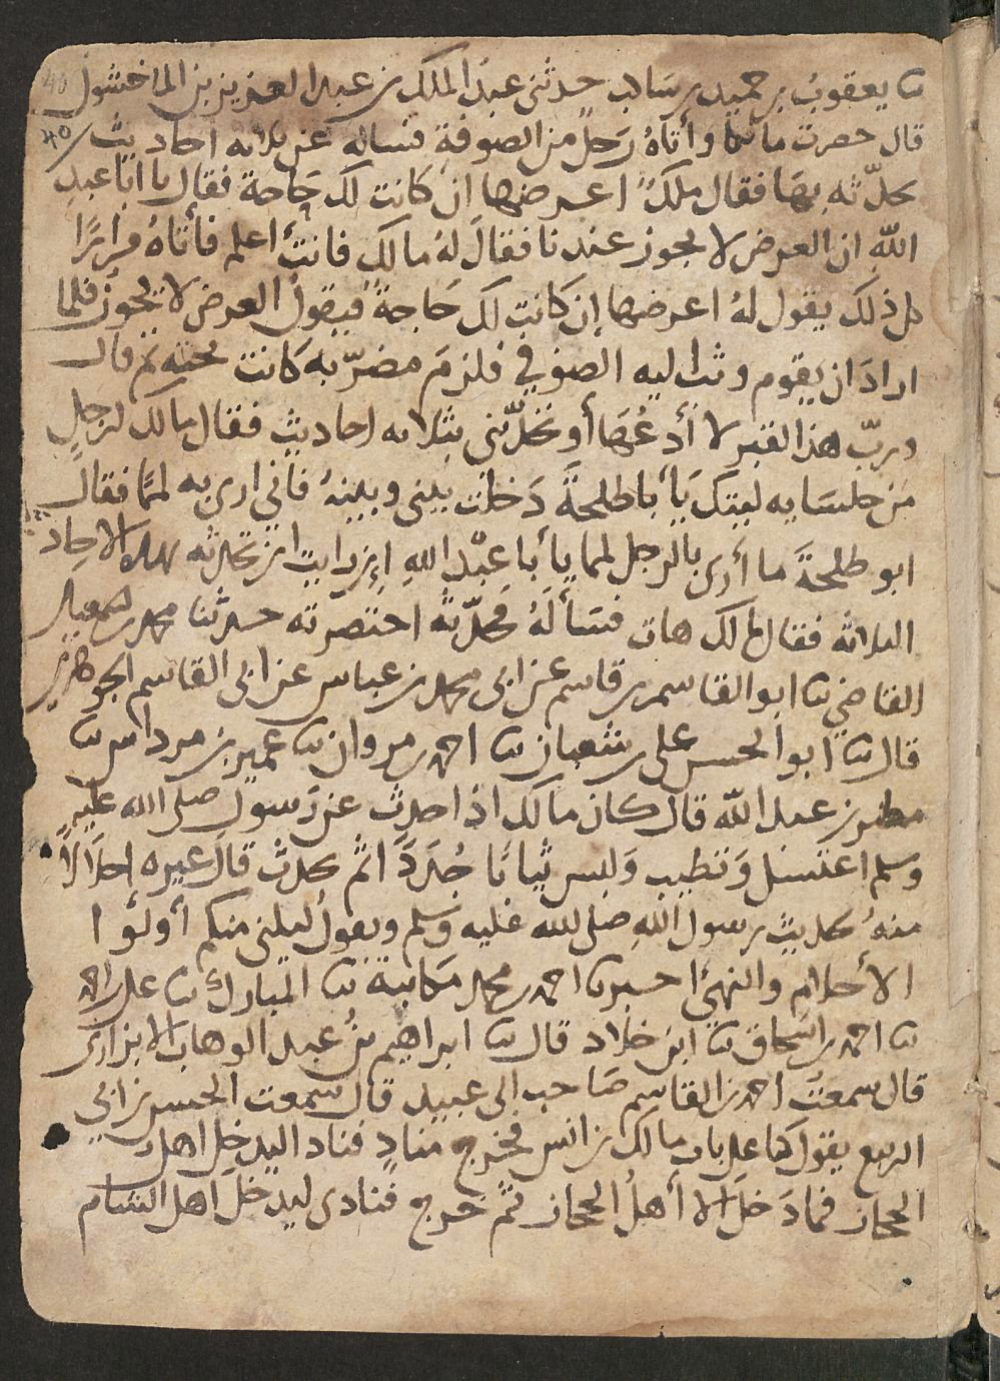 40
ثنا يعقوب بن حميد بن كاسب حدثني عبد الملك بن عبد العزيز بن الماجشون
٤٠
قال حضرت مالكا وأتاه رجل من الصوفة فساله عن ثلاثه احاديث
يحدّثه بها فقال ملك اعرضها ان كانت لك حاجة فقال يا ابا عبد
الله ان العرض لا يجوز عندنا فقال له مالك فانت اعلم فأتاه مرارًا
كل ذلك يقول له اعرضها إن كانت لك حاجة فيقول العرض لا يجوز فلما
اراد ان يقوم وثب اليه الصوفي فلزم مضرّبه كانت تحته ثم قال
وربّ هذا القبر لا أدعها أو تحدّثني بثلاثه احاديث فقال مالك لرجل
من جلسايه ليتك يا أبا طلحة دخلت بيني وبينه فاني ارى به لممًا فقال
ابو طلحة ما أرى بالرجل لمما يا أبا عبد الله إن رايت ان تحدثه بهذه الاحاديث
الثلاثه فقال مالك هات فسأله فحدّثه اختصرته حدثنا محمد بن سعيد
القاضي ثنا ابو القاسم بن قاسم عن ابي محمد بن عباس عن ابي القاسم الجوهري
قال ثنا ابو الحسن علي بن شعبان ثنا احمد بن مروان ثنا عمير بن مرداس ثنا
مطرف بن عبد الله قال كان مالك اذا حدث عن رسول صلى الله عليه
وسلم اغتسل وتطيب ولبس ثيابًا جُدَدًا ثم يحدث قال غيره اجلالًا
منه لحديث رسول الله صلى الله عليه وسلم ويقول ليلني منكم أولوا
الأحلام والنهى احمد بن محمد مكاتبة ثنا المبارك ثنا علي بن احمد
ثنا احمد بن اسحاق ثنا ابن خلاد قال ثنا ابراهيم بن عبد الوهاب الابزاري
قال سمعت احمد بن القاسم صاحب ابي عبيد قال سمعت الحسن بن ابي
الربيع يقول كنا على باب مالك بن انس فخرج مناد فناد اليدخل اهل
الحجاز فما دخل الا أهل الحجاز ثم خرج فنادى ليدخل اهل الشام